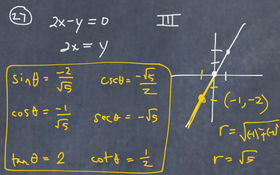 27
2x-y=0
III
2x=y
sinθ = -2/√5
cscθ = -√5/2
cosθ = -1/√5
secθ = -√5
(-1,-2)
tanθ = 2
cotθ = 1/2
r = √(-1)²+(-2)²
r = √5